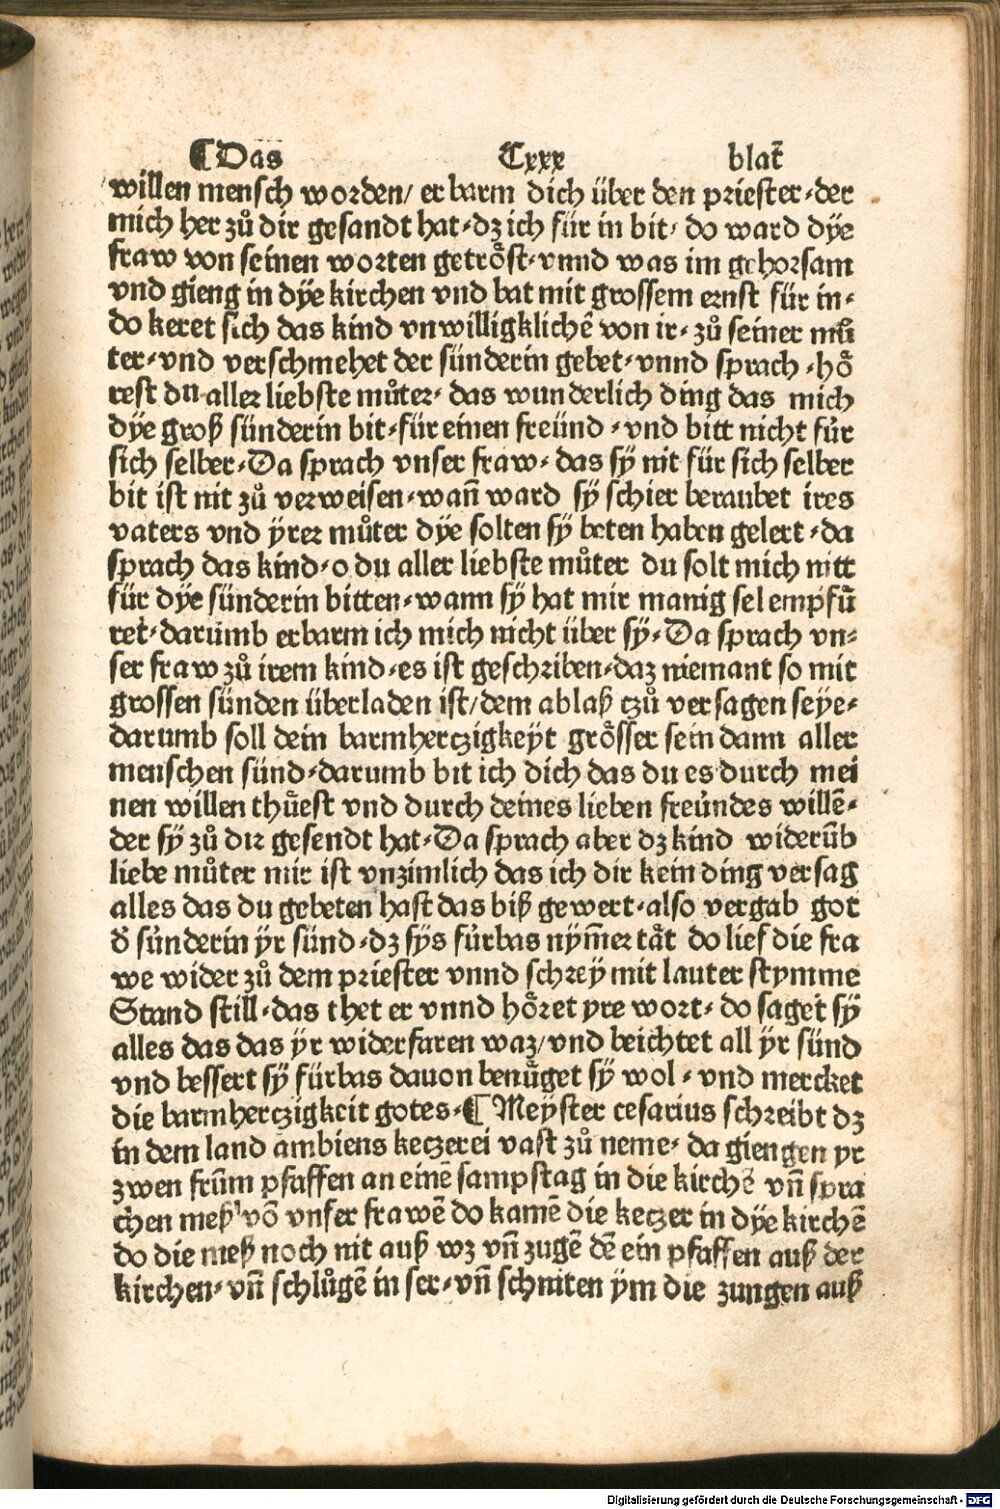 ⸿Das Cxxx blat̄
willen mensch worden/ erbarm dich über den priester·der
mich her zů dir gesandt hat·dz ich für in bit· do ward dÿe
fraw von seinen worten getrȫst·vnnd was im gehorsam
vnd gieng in dÿe kirchen vnd bat mit grossem ernst für in·
do keret sich das kind vnwilligklichē von ir· zů seiner mů
ter·vnd verschmehet der sünderin gebet·vnnd sprach ·hȫ
rest du aller liebste můter· das wunderlich ding das mich
dÿe groß sünderin bit·für einen freünd ·vnd bitt nicht für
sich selber·Da sprach vnser fraw· das sÿ nit für sich selber
bit ist nit zů verweisen·wañ ward sÿ schier beraubet ires
vaters vnd ÿrer můter dÿe solten sÿ beten haben gelert ·da
sprach das kind·o du aller liebste můter du solt mich nitt
für dÿe sünderin bitten·wann sÿ hat mir manig sel empfü
ret·darumb erbarm ich mich nicht über sÿ·Da sprach vn⸗
ser fraw zů irem kind·es ist geschriben·daz niemant so mit
grossen sünden überladen ist/dem ablaß czů versagen seye·
darumb soll dein barmherczigkeÿt grösser sein dann aller
menschen sünd·darumb bit ich dich das du es durch mei
nen willen thüest vnd durch deines lieben freündes willē·
der sÿ zů dir gesendt hat·Da sprach aber dz kind widerūb
liebe můter mir ist vnzimlich das ich dir kein ding versag
alles das du gebeten hast das biß gewert·also vergab got
d̄ sünderin ÿr sünd·dz sÿs fürbas nym̄er tät do lief die fra
we wider zů dem priester vnnd schreÿ mit lauter stymme
Stand still·das thet er vnnd hȫret yre wort· do saget sÿ
alles das das ÿr widerfaren waz/vnd beichtet all ÿr sünd
vnd bessert sÿ fürbas dauon benüget sÿ wol · vnd mercket
die barmherczigkeit gotes·⸿ Meÿster cesarius schreibt dz
in dem land ambiens keczerei vast zů neme· da giengen yr
zwen frūm pfaffen an einē sampstag in die kirchē vñ spra
chen meß vō vnser frawē do kamē die keczer in dÿe kirchē
do die meß noch nit auß wz vñ zugē dē ein pfaffen auß der
kirchen·vñ schlůgē in ser·vñ schniten ÿm die zungen auß
Digitalisierung gefördert durch die Deutsche Forschungsgemeinschaft - DFG